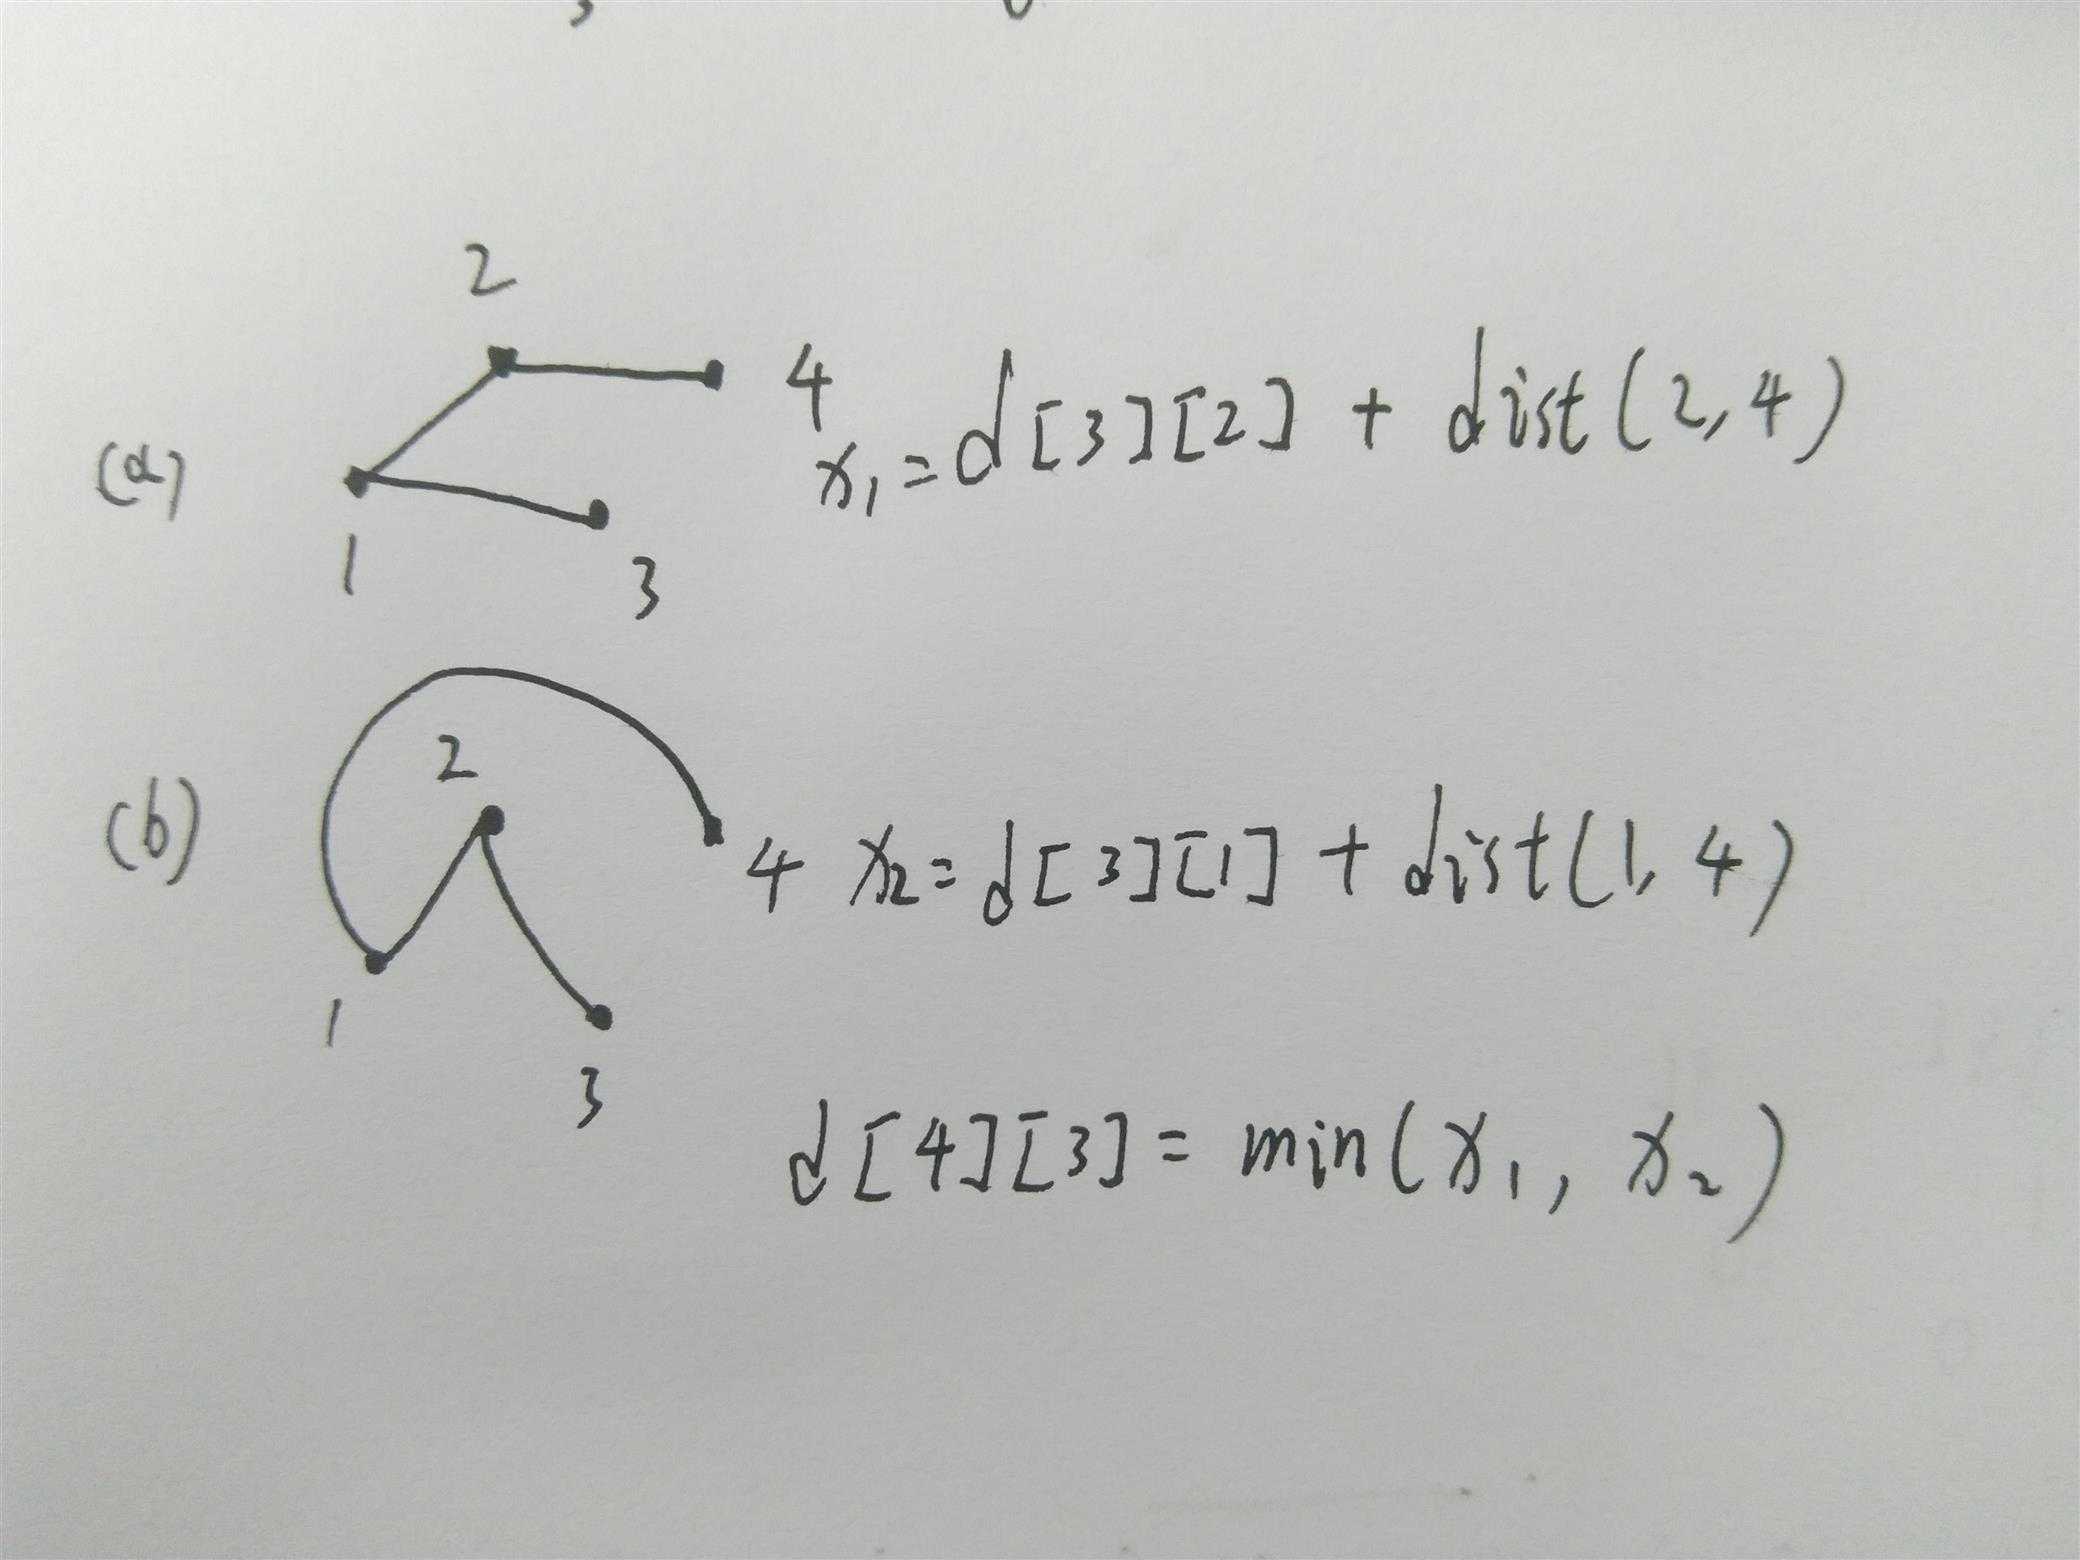 2
4
x₁ = d[3][2] + dist(2,4)
(a)
1
3
2
(b)
4 x₂ = d[3][1] + dist(1,4)
1
3
d[4][3] = min(x₁, x₂)